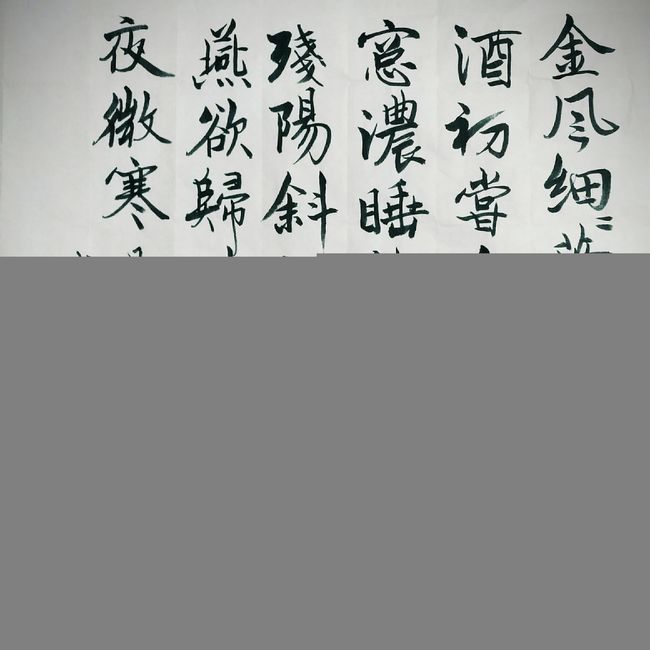 金风细〻
酒初嘗
窓濃睡
殘陽斜
燕欲歸
夜微寒